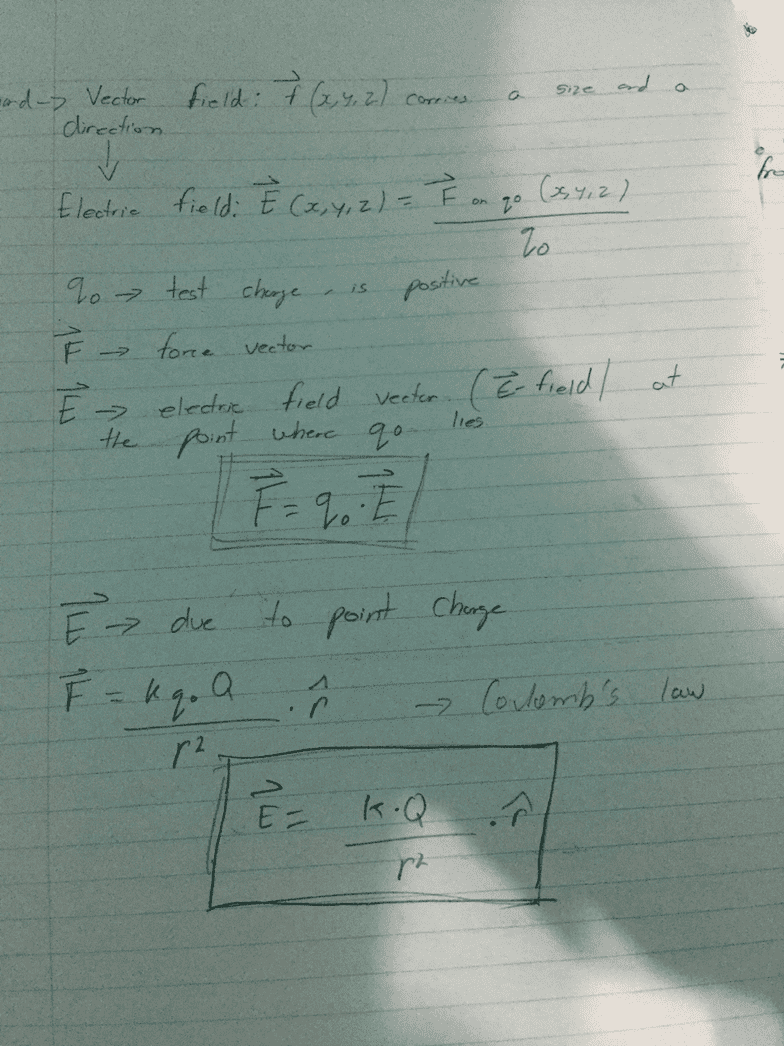 and → Vector field: f⃗ (x,y,z) carries a size and a
direction
↓
Electric field: E⃗ (x,y,z) = F⃗ on q₀ (x,y,z) / q₀
q₀ → test charge, is positive
F⃗ → force vector
E⃗ → electric field vector (E⃗-field) at
the point where q₀ lies
F⃗ = q₀ · E⃗
E⃗ → due to point charge
F⃗ = k q₀ Q / r² · r̂ → Coulomb's law
E⃗ = k · Q / r² · r̂